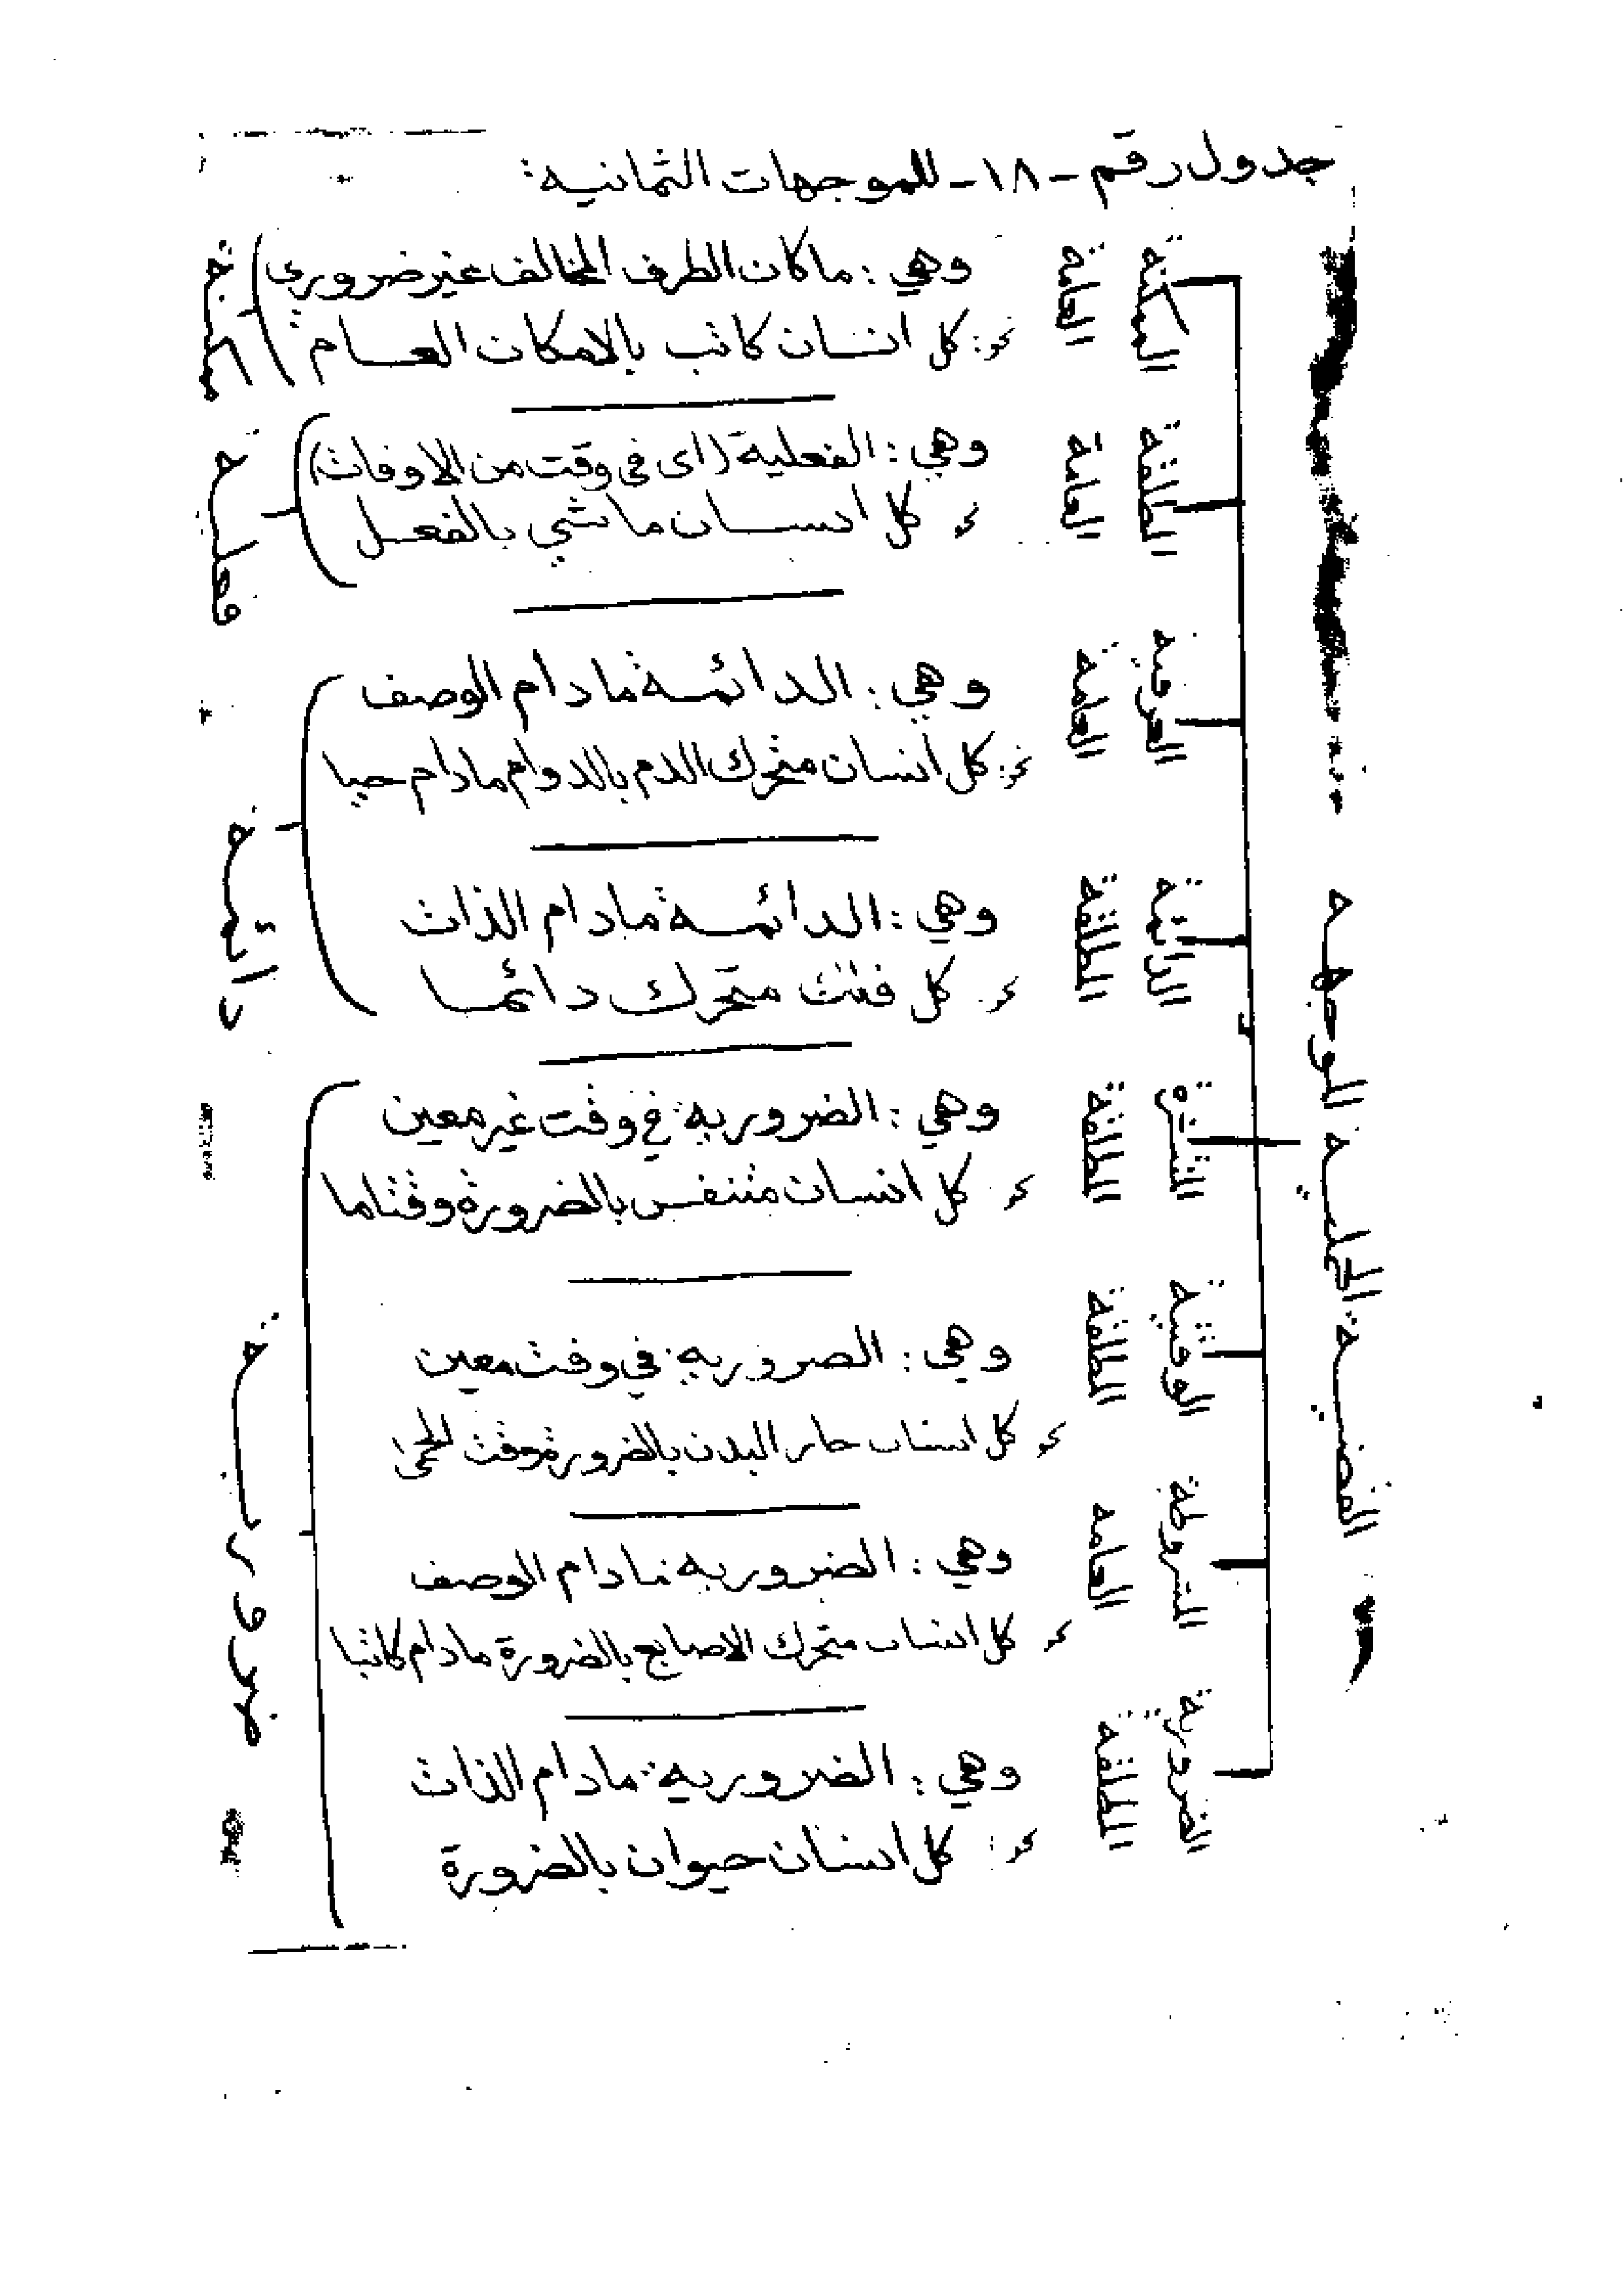 جدول رقم -١٨- للموجهات الثمانية:
القضية الحملية الموجهة
الممكنة العامة
وهي: ما كان الطرف المخالف غير ضروري
نحو: كل انسان كاتب بالامكان العام
ممكنة
المطلقة العامة
وهي: الفعلية (اى في وقت من الاوقات)
نحو كل انسان ماشي بالفعل
فعلية
العرفية العامة
وهي: الدائمة مادام الوصف
نحو: كل انسان متحرك الدم بالدوام مادام حيا
الدائمة المطلقة
وهي: الدائمة مادام الذات
نحو. كل فلك متحرك دائما
دائمة
المنتشرة المطلقة
وهي: الضرورية في وقت غير معين
نحو كل انسان متنفس بالضرورة وقتا ما
الوقتية المطلقة
وهي: الضرورية في وقت معين
نحو كل انسان حار البدن بالضرورة وقت الحمى
المشروطة العامة
وهي: الضرورية مادام الوصف
نحو كل انسان متحرك الاصابع بالضرورة مادام كاتبا
الضرورية المطلقة
وهي: الضرورية مادام الذات
نحو: كل انسان حيوان بالضرورة
ضرورية